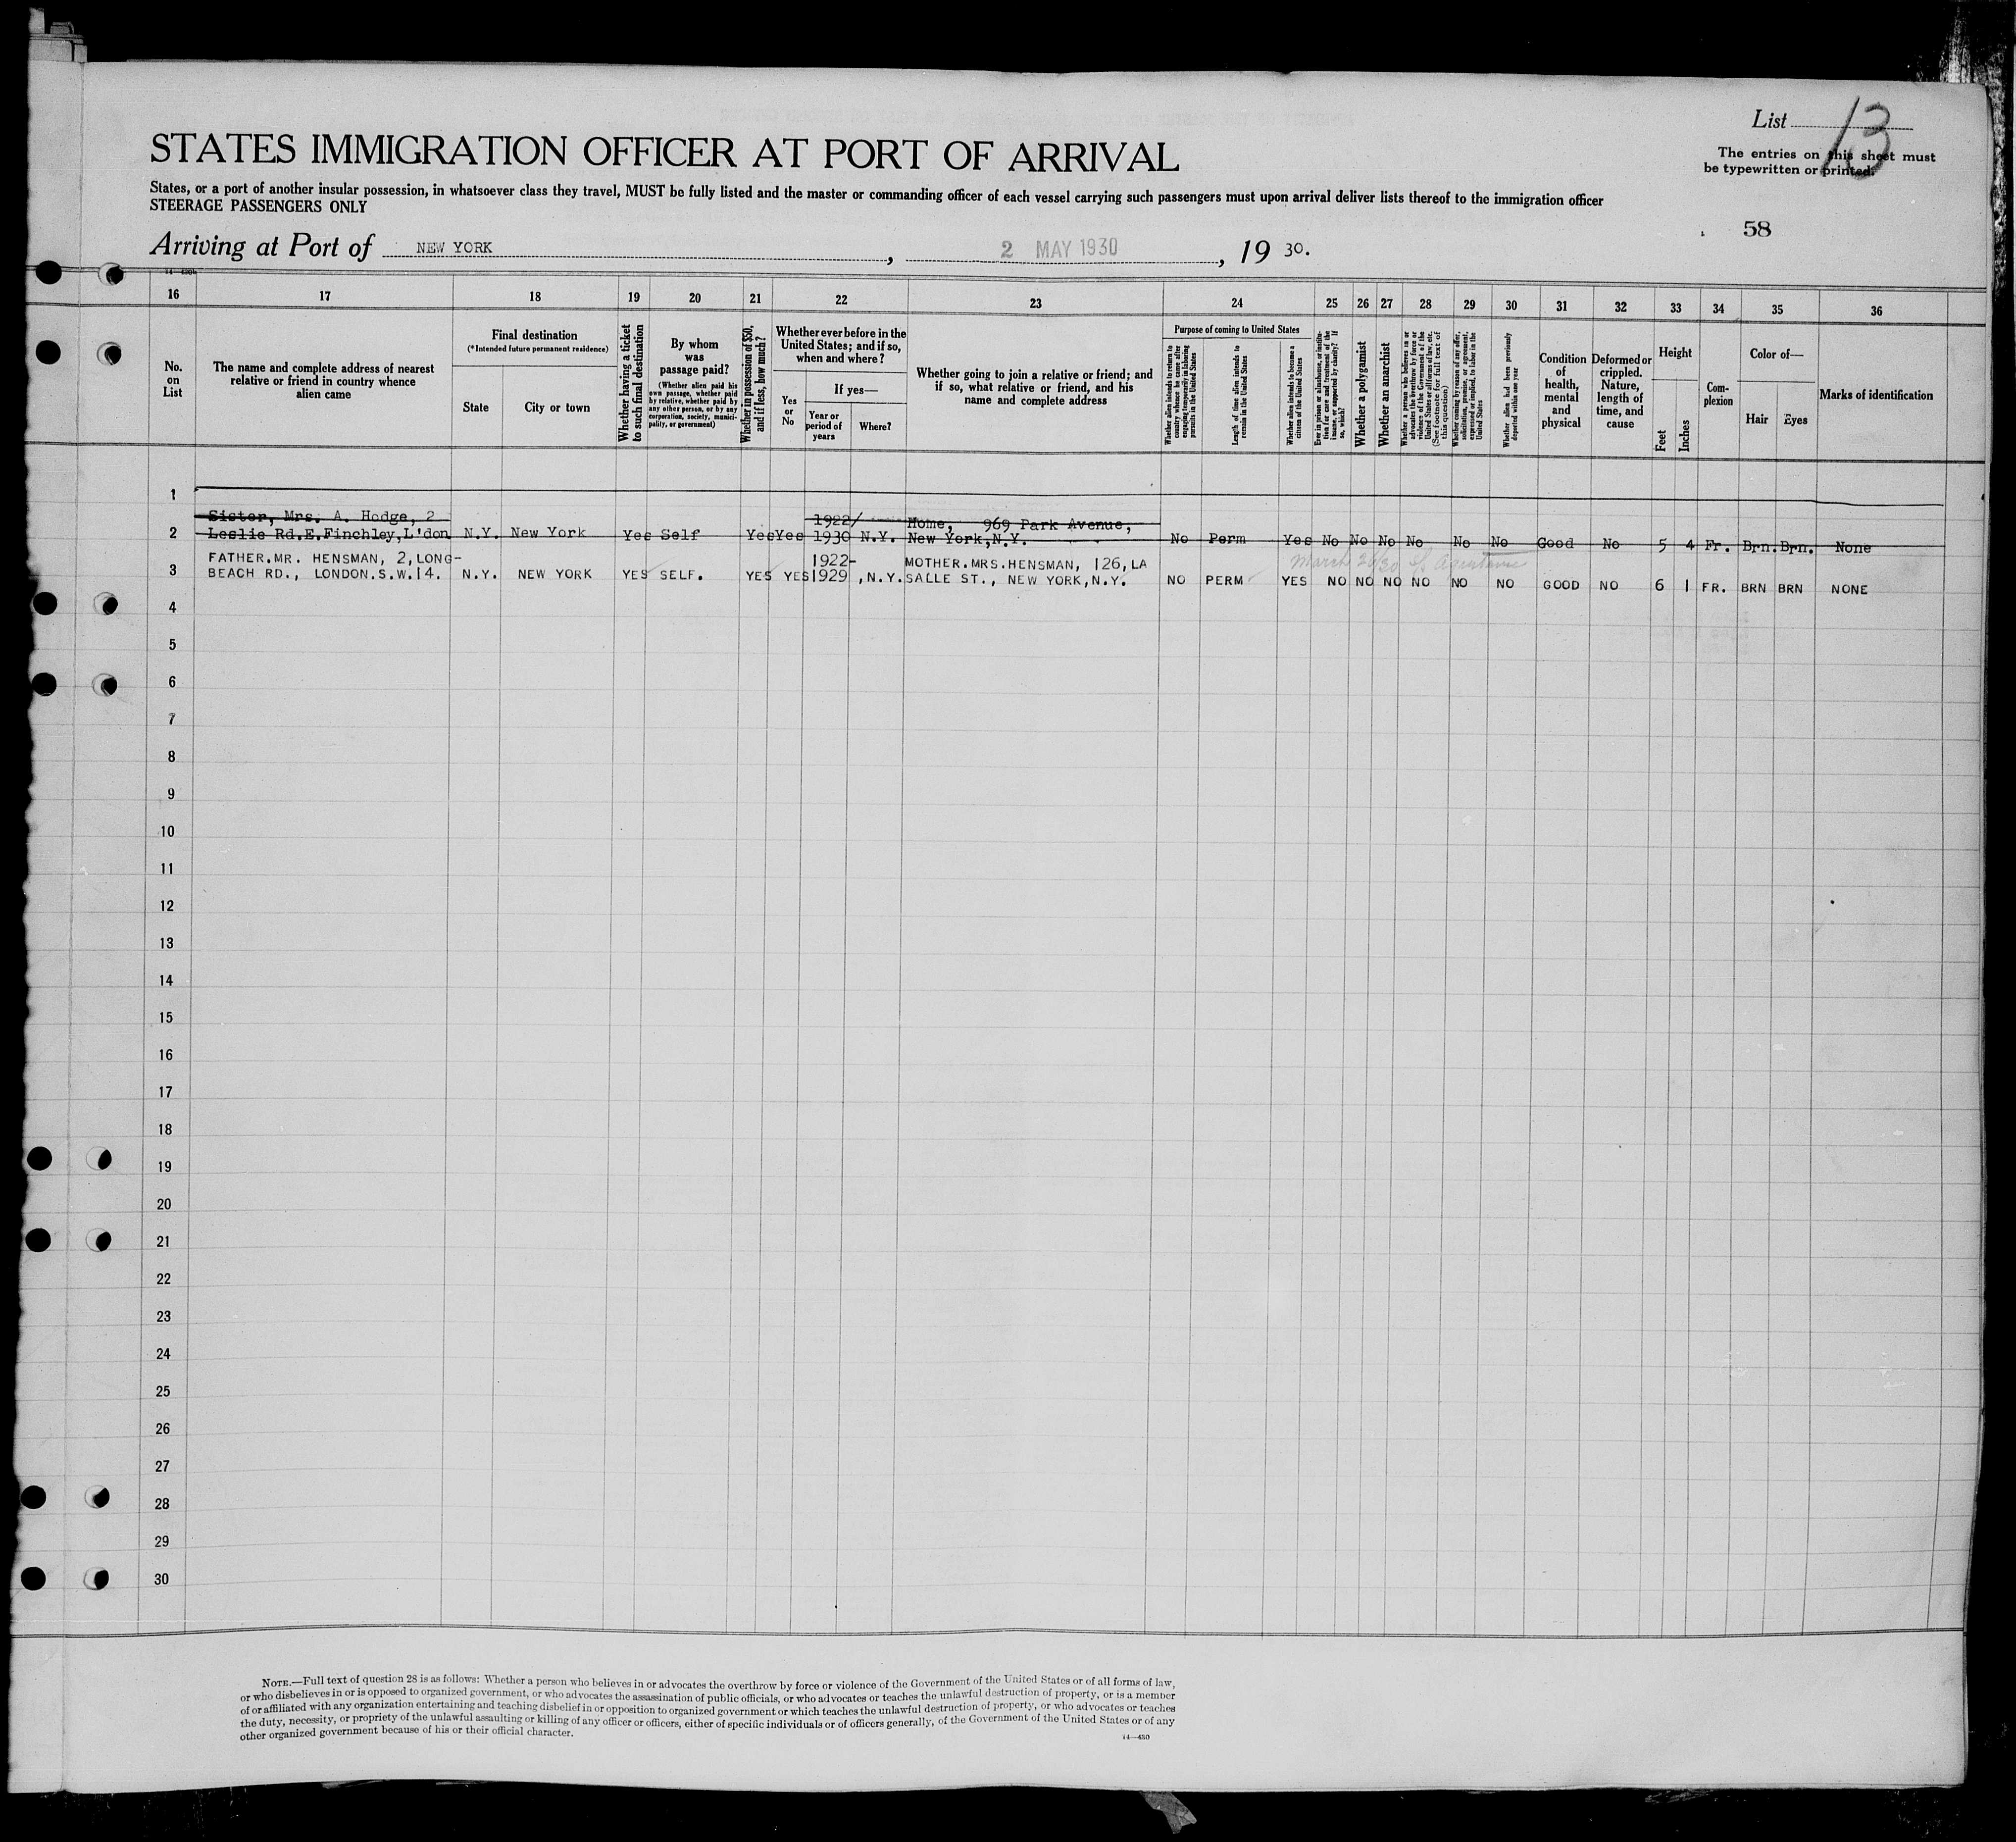 List 13
STATES IMMIGRATION OFFICER AT PORT OF ARRIVAL
The entries on this sheet must
be typewritten or printed.
States, or a port of another insular possession, in whatsoever class they travel, MUST be fully listed and the master or commanding officer of each vessel carrying such passengers must upon arrival deliver lists thereof to the immigration officer
STEERAGE PASSENGERS ONLY
58
Arriving at Port of NEW YORK, 2 MAY 1930, 19 30.
16 17 18 19 20 21 22 23 24 25 26 27 28 29 30 31 32 33 34 35 36
No. on List
The name and complete address of nearest relative or friend in country whence alien came
Final destination
(*Intended future permanent residence)
State
City or town
Whether having a ticket to such final destination
By whom was passage paid?
(Whether alien paid his own passage, whether paid by relative, whether paid by any other person, or by any corporation, society, municipality, or government)
Whether in possession of $50, and if less, how much?
Whether ever before in the United States; and if so, when and where?
Yes or No
If yes—
Year or period of years
Where?
Whether going to join a relative or friend; and if so, what relative or friend, and his name and complete address
Purpose of coming to United States
Whether alien intends to return to country whence he came after engaging temporarily in laboring pursuits in the United States
Length of time alien intends to remain in the United States
Whether alien intends to become a citizen of the United States
Ever in prison or almshouse, or institution for care and treatment of the insane, or supported by charity? If so, which?
Whether a polygamist
Whether an anarchist
Whether a person who believes in or advocates the overthrow by force or violence of the Government of the United States or all forms of law, etc. (See footnote for full text of this question)
Whether coming by reason of any offer, solicitation, promise, or agreement, expressed or implied, to labor in the United States
Whether alien had been previously deported within one year
Condition of health, mental and physical
Deformed or crippled. Nature, length of time, and cause
Height
Feet
Inches
Complexion
Color of—
Hair
Eyes
Marks of identification
1
Sister, Mrs. A. Hodge, 2 1922/ Home, 969 Park Avenue,
2 Leslie Rd.E.Finchley,L'don N.Y. New York Yes Self Yes Yes 1930 N.Y. New York,N.Y. No Perm Yes No No No No No No Good No 5 4 Fr. Brn. Brn. None
FATHER.MR. HENSMAN, 2,LONG- 1922- MOTHER.MRS.HENSMAN, 126,LA March
3 BEACH RD., LONDON.S.W.14. N.Y. NEW YORK YES SELF. YES YES 1929 ,N.Y. SALLE ST., NEW YORK,N.Y. NO PERM YES NO NO NO NO NO NO GOOD NO 6 1 FR. BRN BRN NONE
4
5
6
7
8
9
10
11
12
13
14
15
16
17
18
19
20
21
22
23
24
25
26
27
28
29
30
NOTE.—Full text of question 28 is as follows: Whether a person who believes in or advocates the overthrow by force or violence of the Government of the United States or of all forms of law,
or who disbelieves in or is opposed to organized government, or who advocates the assassination of public officials, or who advocates or teaches the unlawful destruction of property, or is a member
of or affiliated with any organization entertaining and teaching disbelief in or opposition to organized government or which teaches the unlawful destruction of property, or who advocates or teaches
the duty, necessity, or propriety of the unlawful assaulting or killing of any officer or officers, either of specific individuals or of officers generally, of the Government of the United States or of any
other organized government because of his or their official character.
14—430